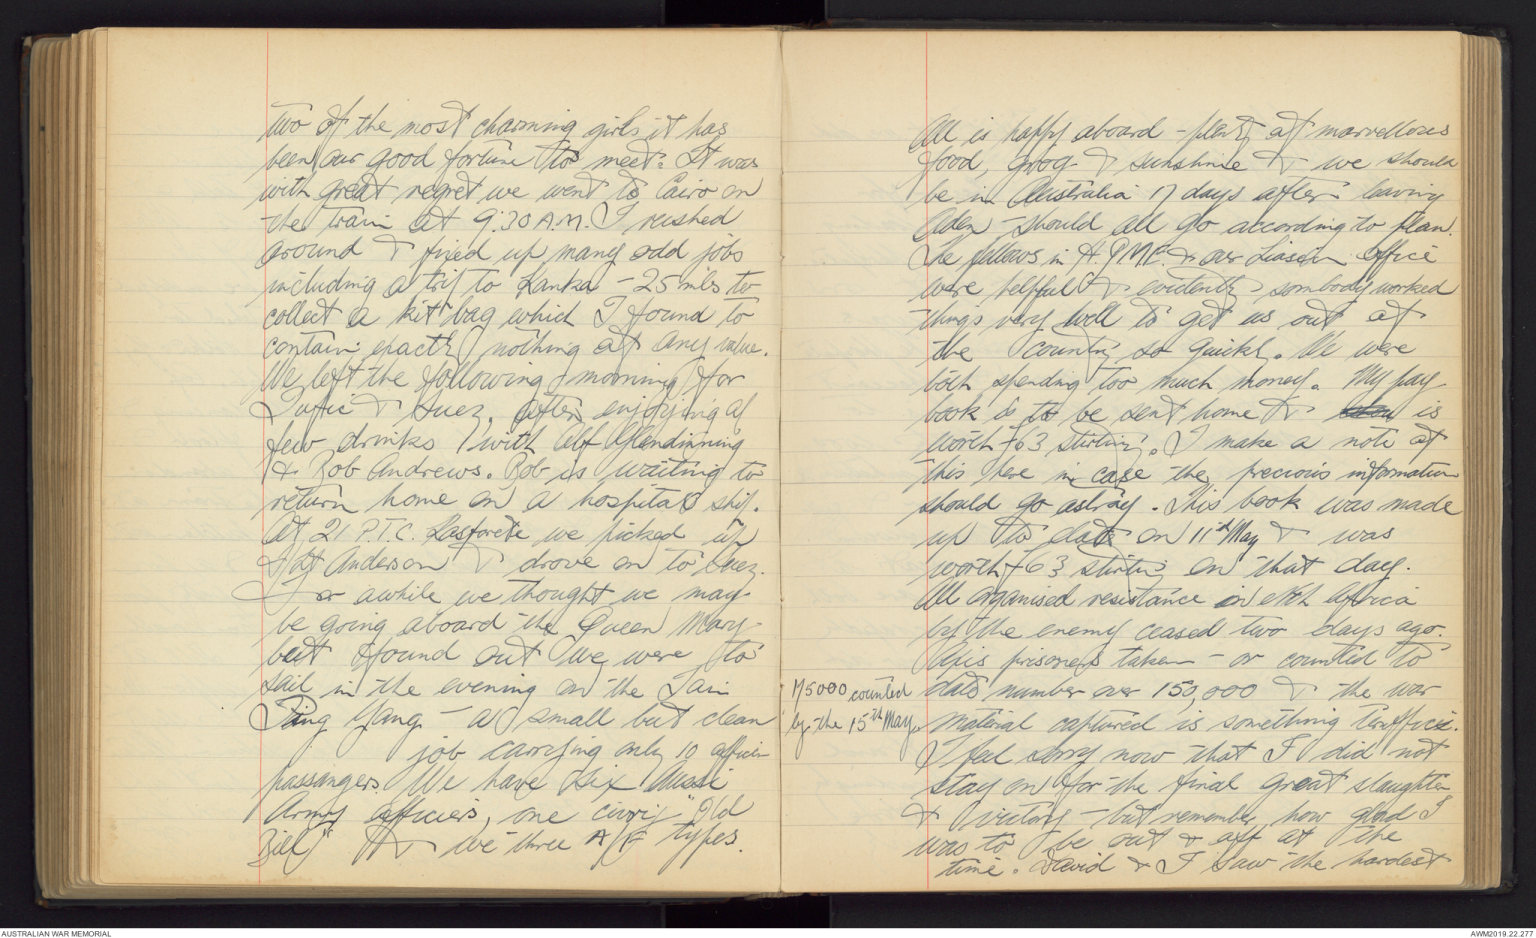 two of the most charming girls it has
been our good fortune to meet. It was
with great regret we went to Cairo on
the train at 9:30 A.M. I rushed
around & fixed up many odd jobs
including a trip to Kanka - 25 miles to
collect a kit bag which I found to
contain exactly nothing of any value.
We left the following morning for
& Suez. After enjoying a
few drinks with Alf Glendinning
& Rob Andrews. Rob is waiting to
return home on a hospital ship.
At 21 P.T.C. Kasfareet we picked up
Anderson & drove on to Suez.
For awhile we thought we may
be going aboard the Queen Mary -
but found out we were to
sail in the evening on the Tai
Ping Yang - a small but clean
job carrying only 10 officer
passengers. We have six Aussi
Army officers, one civvy "Old
Bill" & we three A/F types.
All is happy aboard - plenty of marvellous
food, grog & sunshine & we should
be in Australia 17 days after leaving
Aden - should all go according to plan.
The fellows in H.Q. M.E. & our Liason office
were helpful & evidently sombody worked
things very well to get us out of
the country so quickly. We were
both spending too much money. My pay
book is to be sent home & is
worth £63 stirling. I make a note of
this here in case the precious information
should go astray. This book was made
up to date on 11th May & was
worth £63 stirling on that day.
All organised resistance in Nth Africa
by the enemy ceased two days ago.
Axis prisoners taken - or counted to
175000 counted
by the 15th May.
date number over 150,000 & the war
material captured is something terrific.
I feel sorry now that I did not
stay on for the final great slaughter
& victory - but remember how glad I
was to be out & off at the
time. David & I saw the hardest
AUSTRALIAN WAR MEMORIAL
AWM2019.22.277